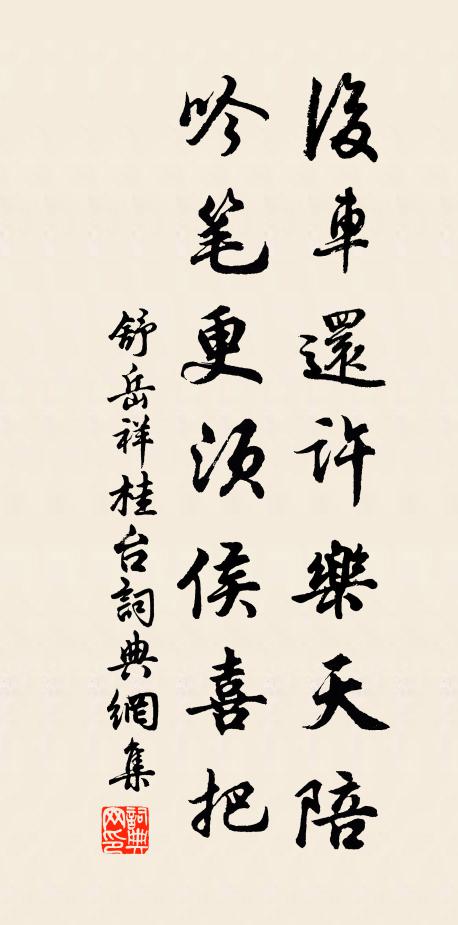 後車還許樂天陪
吟笔更須侯喜把
舒岳祥桂台詞典網集
詞典网印